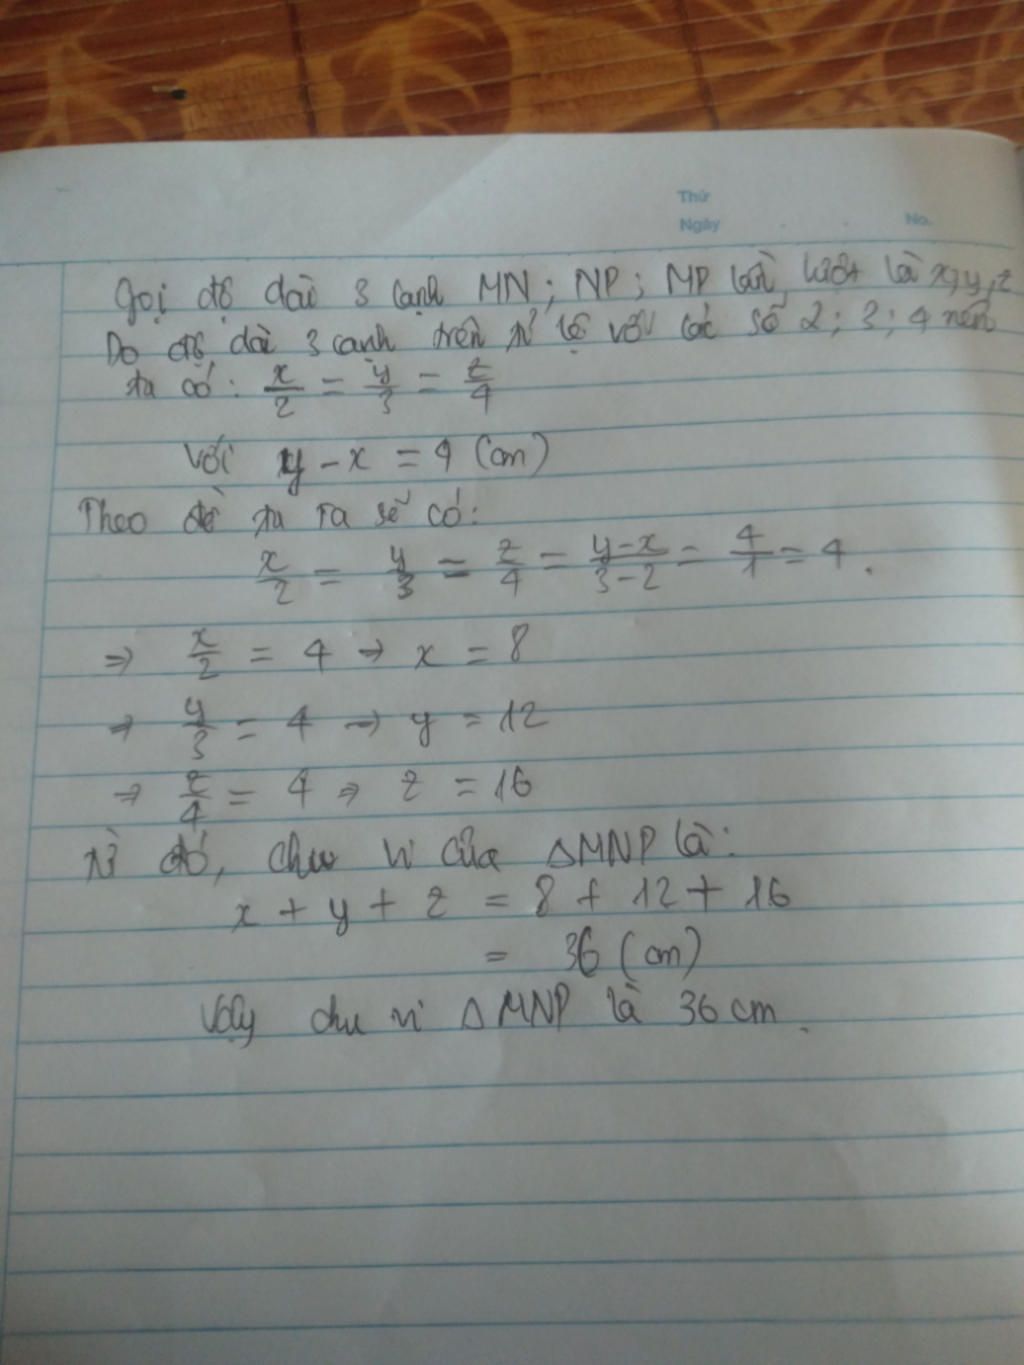 Thứ
Ngày No.
Gọi độ dài 3 cạnh MN; NP; MP lần lượt là x, y, z
Do độ dài 3 cạnh trên tỉ lệ với các số 2; 3; 4 nên
ta có: x/2 = y/3 = z/4
với y - x = 4 (cm)
Theo đề ta ra sẽ có:
x/2 = y/3 = z/4 = y-x/3-2 = 4/1 = 4.
⇒ x/2 = 4 → x = 8
⇒ y/3 = 4 → y = 12
⇒ z/4 = 4 ⇒ z = 16
Từ đó, chu vi của ΔMNP là:
x + y + z = 8 + 12 + 16
= 36 (cm)
Vậy chu vi ΔMNP là 36 cm.